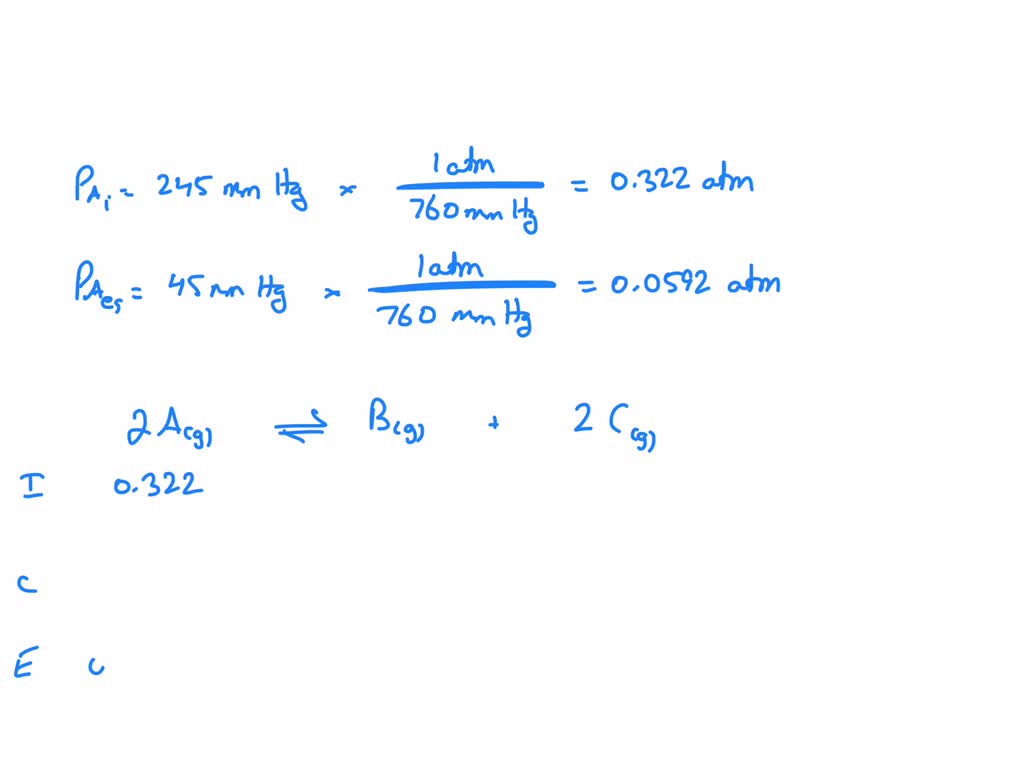 P_Ai = 245 mm Hg × 1 atm / 760 mm Hg = 0.322 atm
P_Aeq = 45 mm Hg × 1 atm / 760 mm Hg = 0.0592 atm
2 A(g) ⇌ B(g) + 2 C(g)
I 0.322
C
E